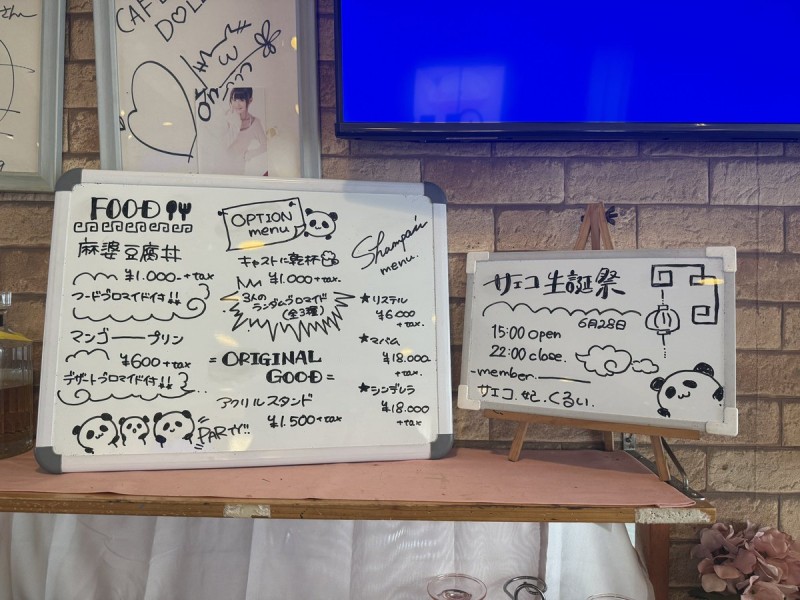 さん
CAFE
DOLL
FOOD
麻婆豆腐丼
¥1.000-+tax
フードブロマイド付↓↓
マンゴープリン
¥600+tax
デザートブロマイド付↓↓
PARTY!!
OPTION
menu
キャストに乾杯
¥1.000+tax.
3人の
ランダムブロマイド
(全3種)
=ORIGINAL
GOOD=
アクリルスタンド
¥1.500+tax
Shampain
menu.
★リステル
¥6.000
+tax.
★マバム
¥18.000
+tax.
★シンデレラ
¥18.000
+tax
サェコ生誕祭
6月28日
15:00 open
22:00 close.
-member.
サェコ.妃.くるい.